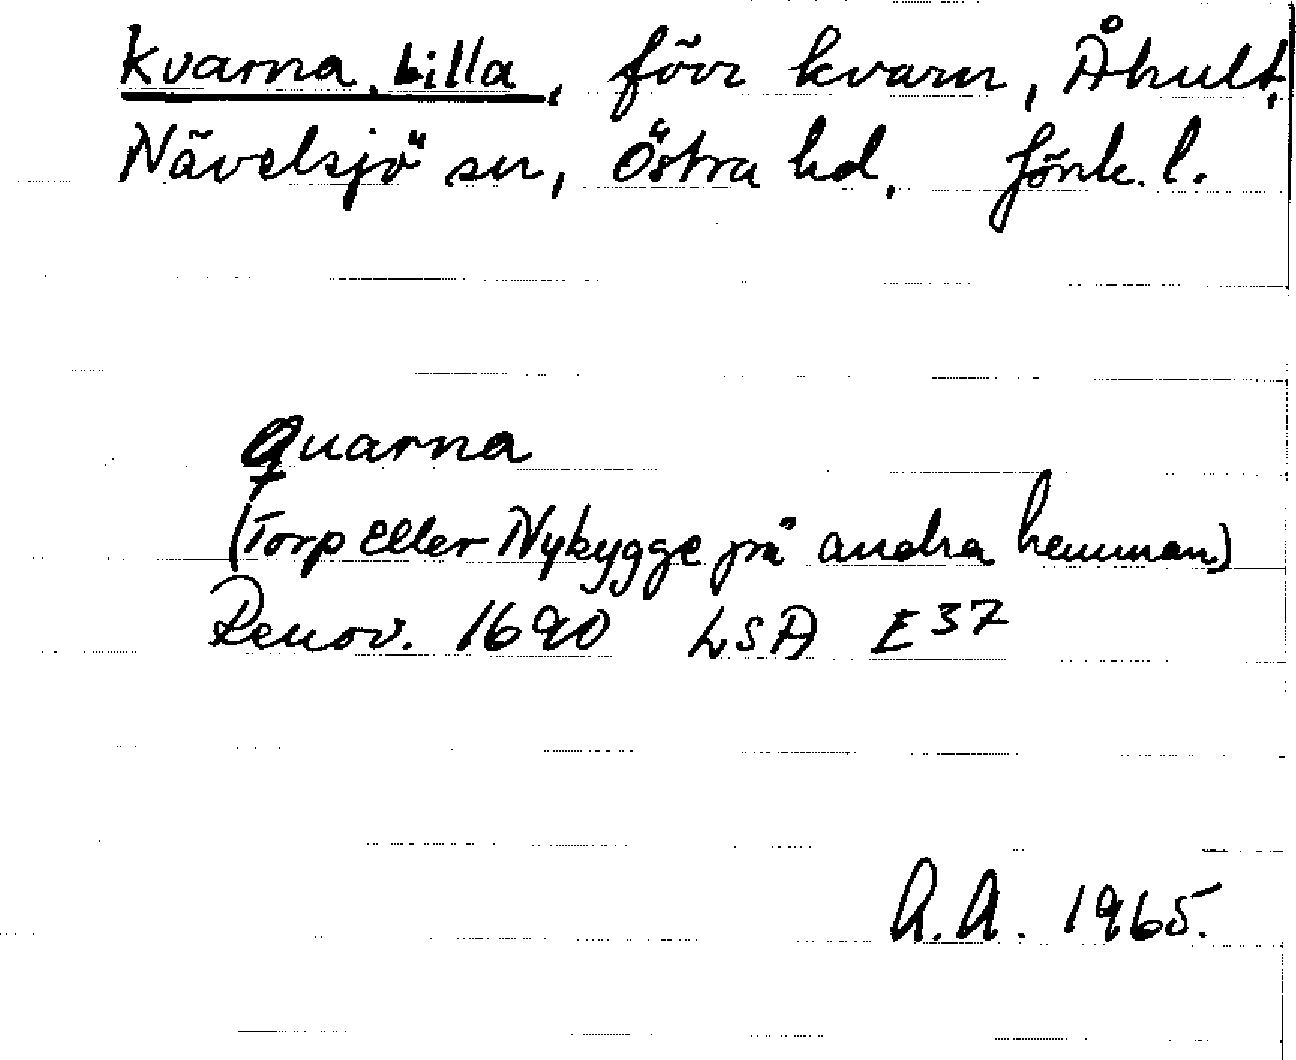 Kvarna, Lilla, förr kvarn, Åhult,
Nävelsjö sn, Östra hd, Jönk. l.
Quarna
(Torp eller Nybygge på andra hemman)
Renov. 1690 LSA E 37
A.A. 1965.